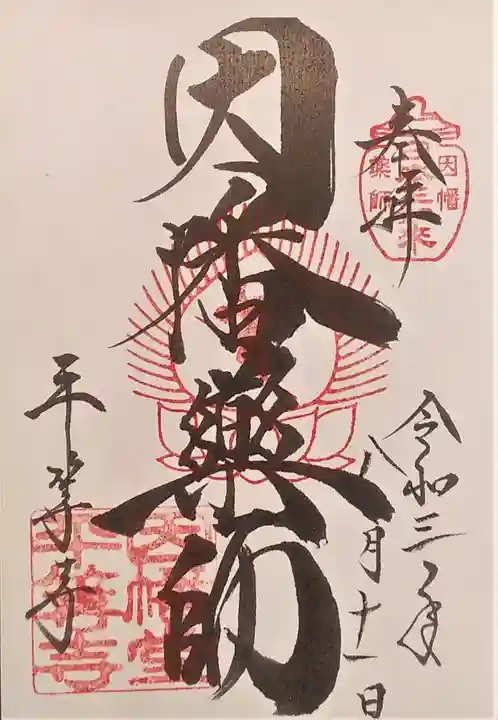 奉拝
因幡
薬師
令和三年
八月十一日
因幡薬師
平等寺
因幡堂
平等寺